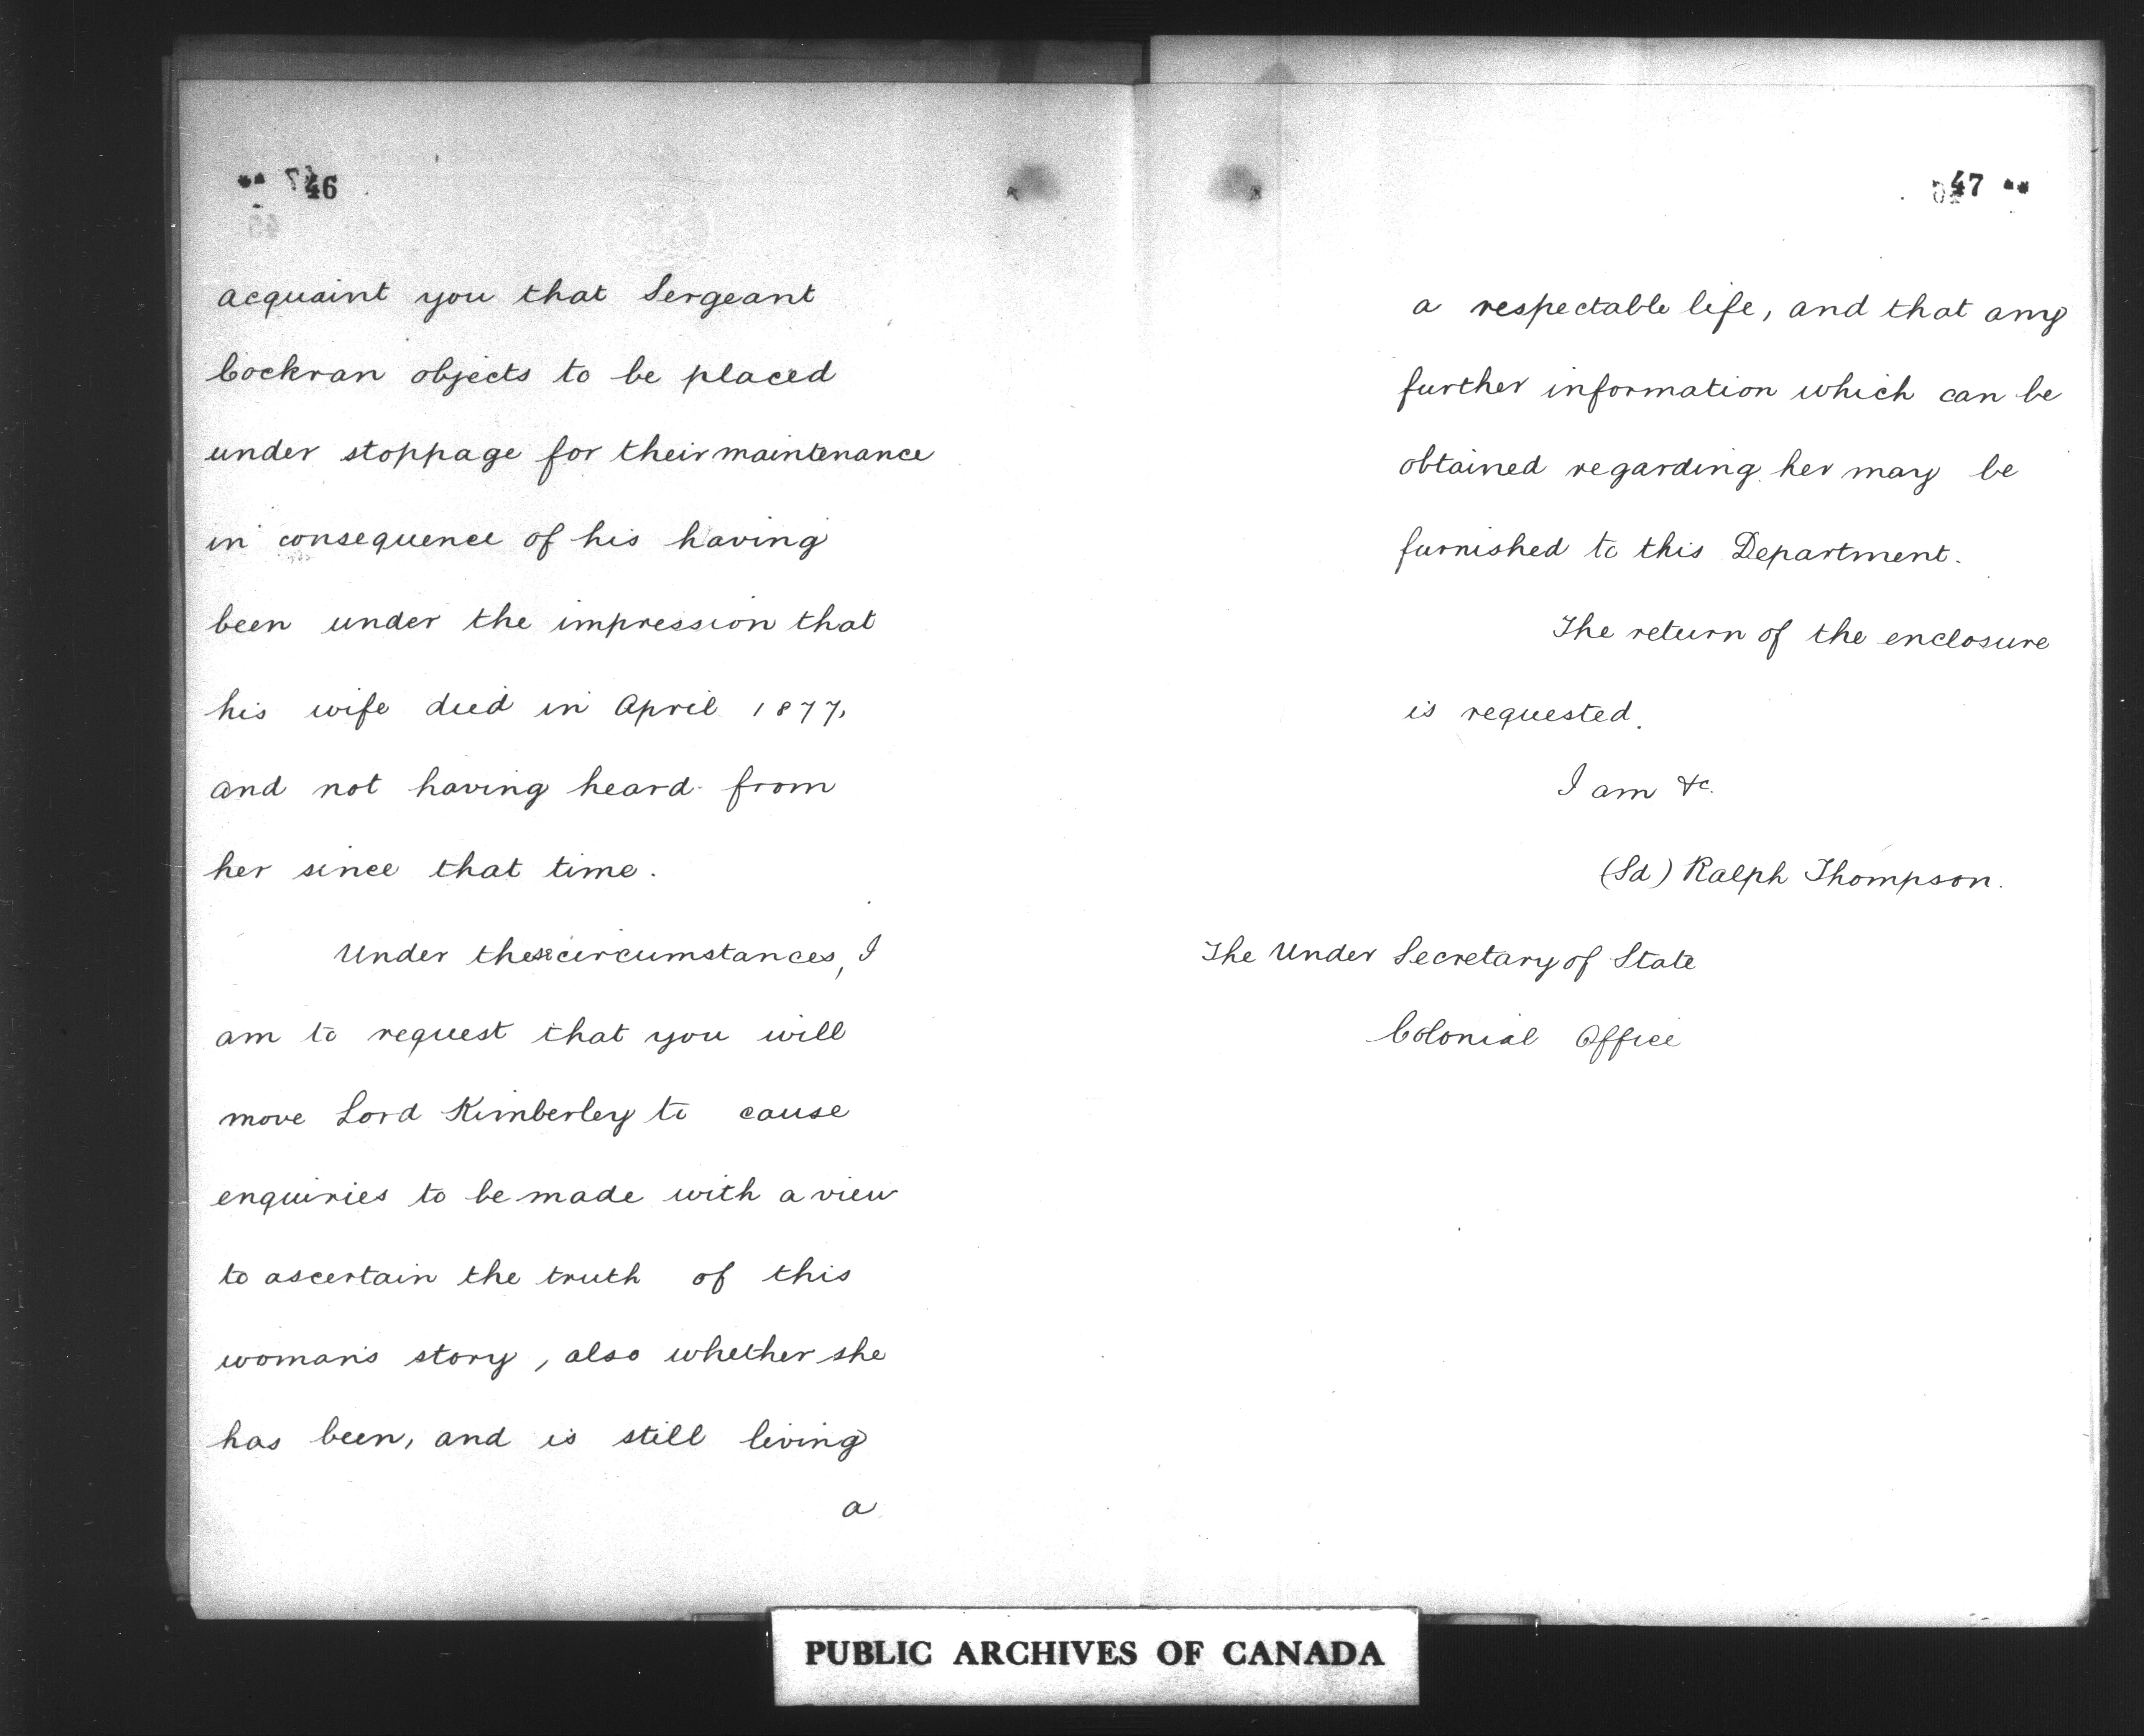 46
acquaint you that Sergeant
Cockran objects to be placed
under stoppage for their maintenance
in consequence of his having
been under the impression that
his wife died in April 1877,
and not having heard from
her since that time.
Under these circumstances, I
am to request that you will
move Lord Kimberley to cause
enquiries to be made with a view
to ascertain the truth of this
woman's story, also whether she
has been, and is still living
a
47
a respectable life, and that any
further information which can be
obtained regarding her may be
furnished to this Department.
The return of the enclosure
is requested.
I am &c.
(Sd) Ralph Thompson.
The Under Secretary of State
Colonial Office
PUBLIC ARCHIVES OF CANADA